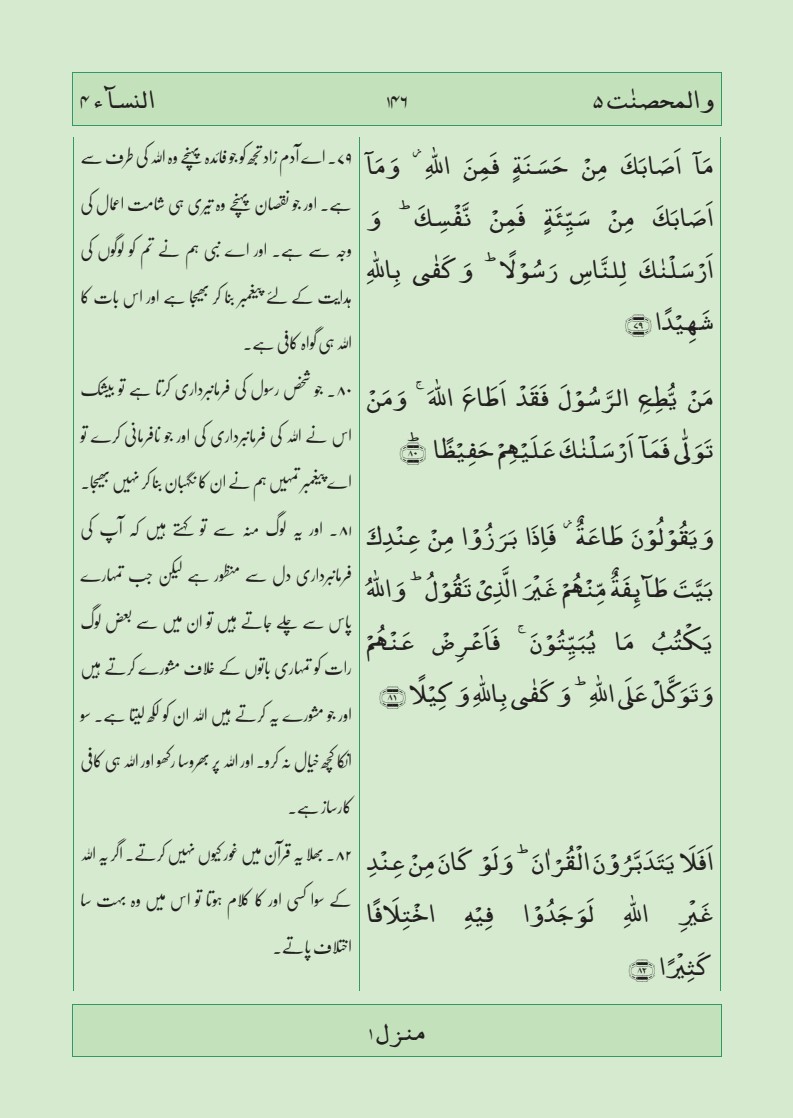 والمحصنٰت ۵
۱۴۶
النسآء ۴
مَاۤ اَصَابَكَ مِنْ حَسَنَةٍ فَمِنَ اللّٰهِ ؗ وَ مَاۤ
اَصَابَكَ مِنْ سَيِّئَةٍ فَمِنْ نَّفْسِكَ ؕ وَ
اَرْسَلْنٰكَ لِلنَّاسِ رَسُوْلًا ؕ وَ كَفٰى بِاللّٰهِ
شَهِيْدًا ۷۹
مَنْ يُّطِعِ الرَّسُوْلَ فَقَدْ اَطَاعَ اللّٰهَ ۚ وَ مَنْ
تَوَلّٰى فَمَاۤ اَرْسَلْنٰكَ عَلَيْهِمْ حَفِيْظًا ؕ ۸۰
وَ يَقُوْلُوْنَ طَاعَةٌ ؗ فَاِذَا بَرَزُوْا مِنْ عِنْدِكَ
بَيَّتَ طَآئِفَةٌ مِّنْهُمْ غَيْرَ الَّذِيْ تَقُوْلُ ؕ وَ اللّٰهُ
يَكْتُبُ مَا يُبَيِّتُوْنَ ۚ فَاَعْرِضْ عَنْهُمْ
وَ تَوَكَّلْ عَلَى اللّٰهِ ؕ وَ كَفٰى بِاللّٰهِ وَكِيْلًا ۸۱
اَفَلَا يَتَدَبَّرُوْنَ الْقُرْاٰنَ ؕ وَ لَوْ كَانَ مِنْ عِنْدِ
غَيْرِ اللّٰهِ لَوَجَدُوْا فِيْهِ اخْتِلَافًا
كَثِيْرًا ۸۲
۷۹۔ اے آدم زاد تجھ کو جو فائدہ پہنچے وہ اللہ کی طرف سے
ہے۔ اور جو نقصان پہنچے وہ تیری ہی شامت اعمال کی
وجہ سے ہے۔ اور اے نبی ہم نے تم کو لوگوں کی
ہدایت کے لئے پیغمبر بنا کر بھیجا ہے اور اس بات کا
اللہ ہی گواہ کافی ہے۔
۸۰۔ جو شخص رسول کی فرمانبرداری کرتا ہے تو بیشک
اس نے اللہ کی فرمانبرداری کی اور جو نافرمانی کرے تو
اے پیغمبر تمہیں ہم نے ان کا نگہبان بنا کر نہیں بھیجا۔
۸۱۔ اور یہ لوگ منہ سے تو کہتے ہیں کہ آپ کی
فرمانبرداری دل سے منظور ہے لیکن جب تمہارے
پاس سے چلے جاتے ہیں تو ان میں سے بعض لوگ
رات کو تمہاری باتوں کے خلاف مشورے کرتے ہیں
اور جو مشورے یہ کرتے ہیں اللہ ان کو لکھ لیتا ہے۔ سو
انکا کچھ خیال نہ کرو۔ اور اللہ پر بھروسا رکھو اور اللہ ہی کافی
کارساز ہے۔
۸۲۔ بھلا یہ قرآن میں غور کیوں نہیں کرتے۔ اگر یہ اللہ
کے سوا کسی اور کا کلام ہوتا تو اس میں وہ بہت سا
اختلاف پاتے۔
منزل ۱